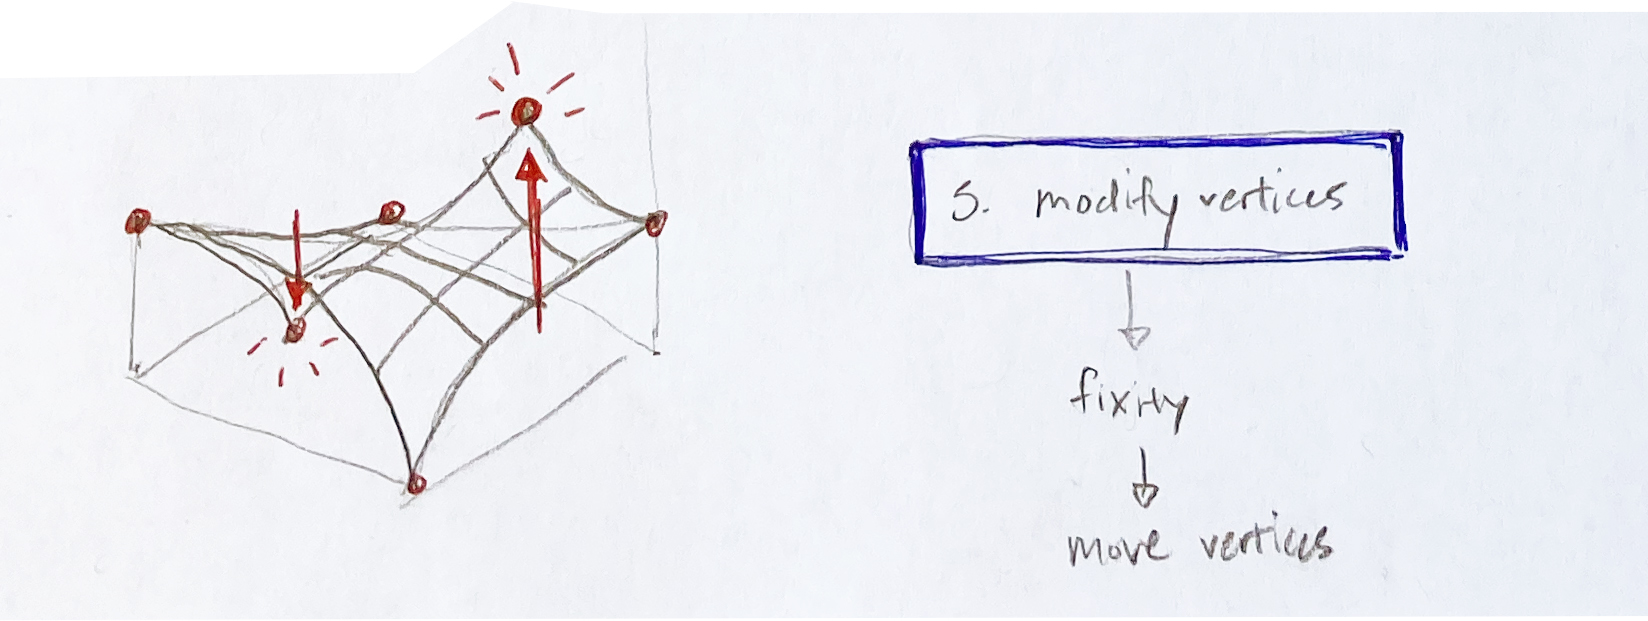 5. modify vertices
fixity
move vertices